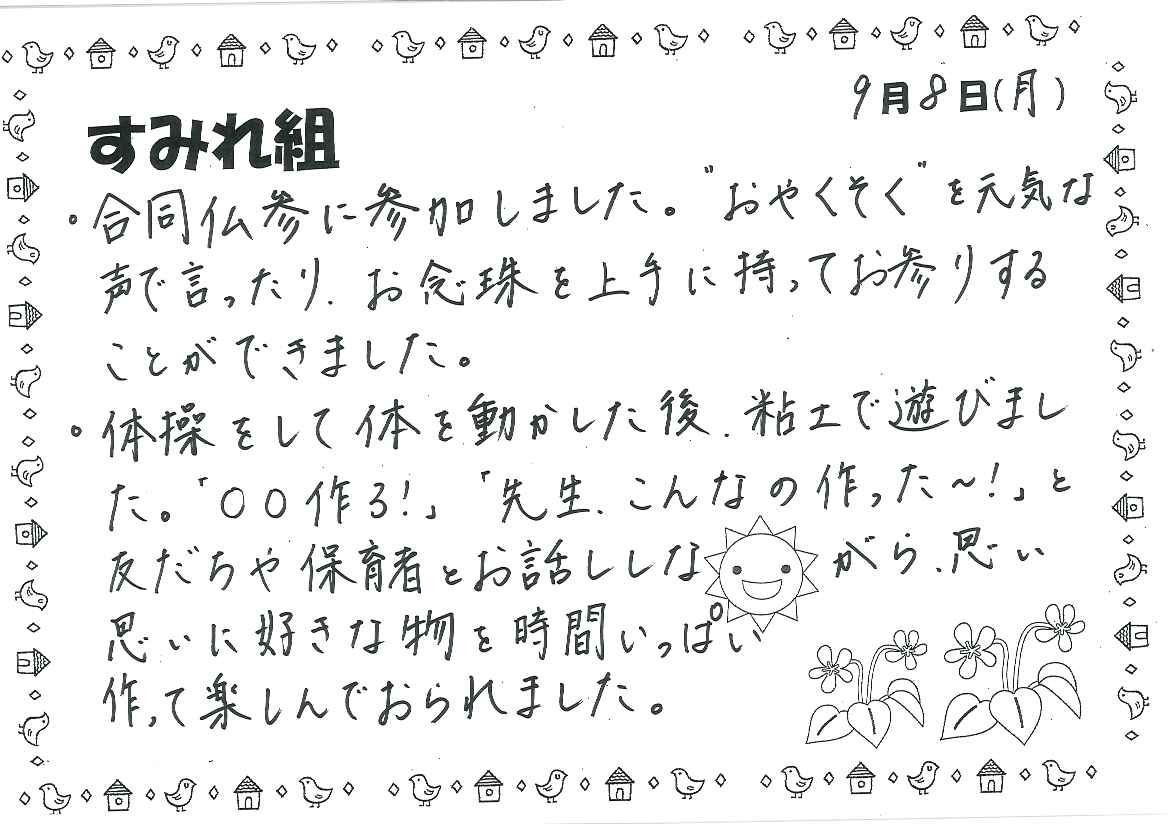 9月8日(月)
すみれ組
・合同仏参に参加しました。"おやくそく"を元気な
声で言ったり、お念珠を上手に持ってお参りする
ことができました。
・体操をして体を動かした後、粘土で遊びまし
た。「〇〇作ろ!」「先生、こんなの作った~!」と
友だちや保育者とお話ししながら、思い
思いに好きな物を時間いっぱい
作って楽しんでおられました。